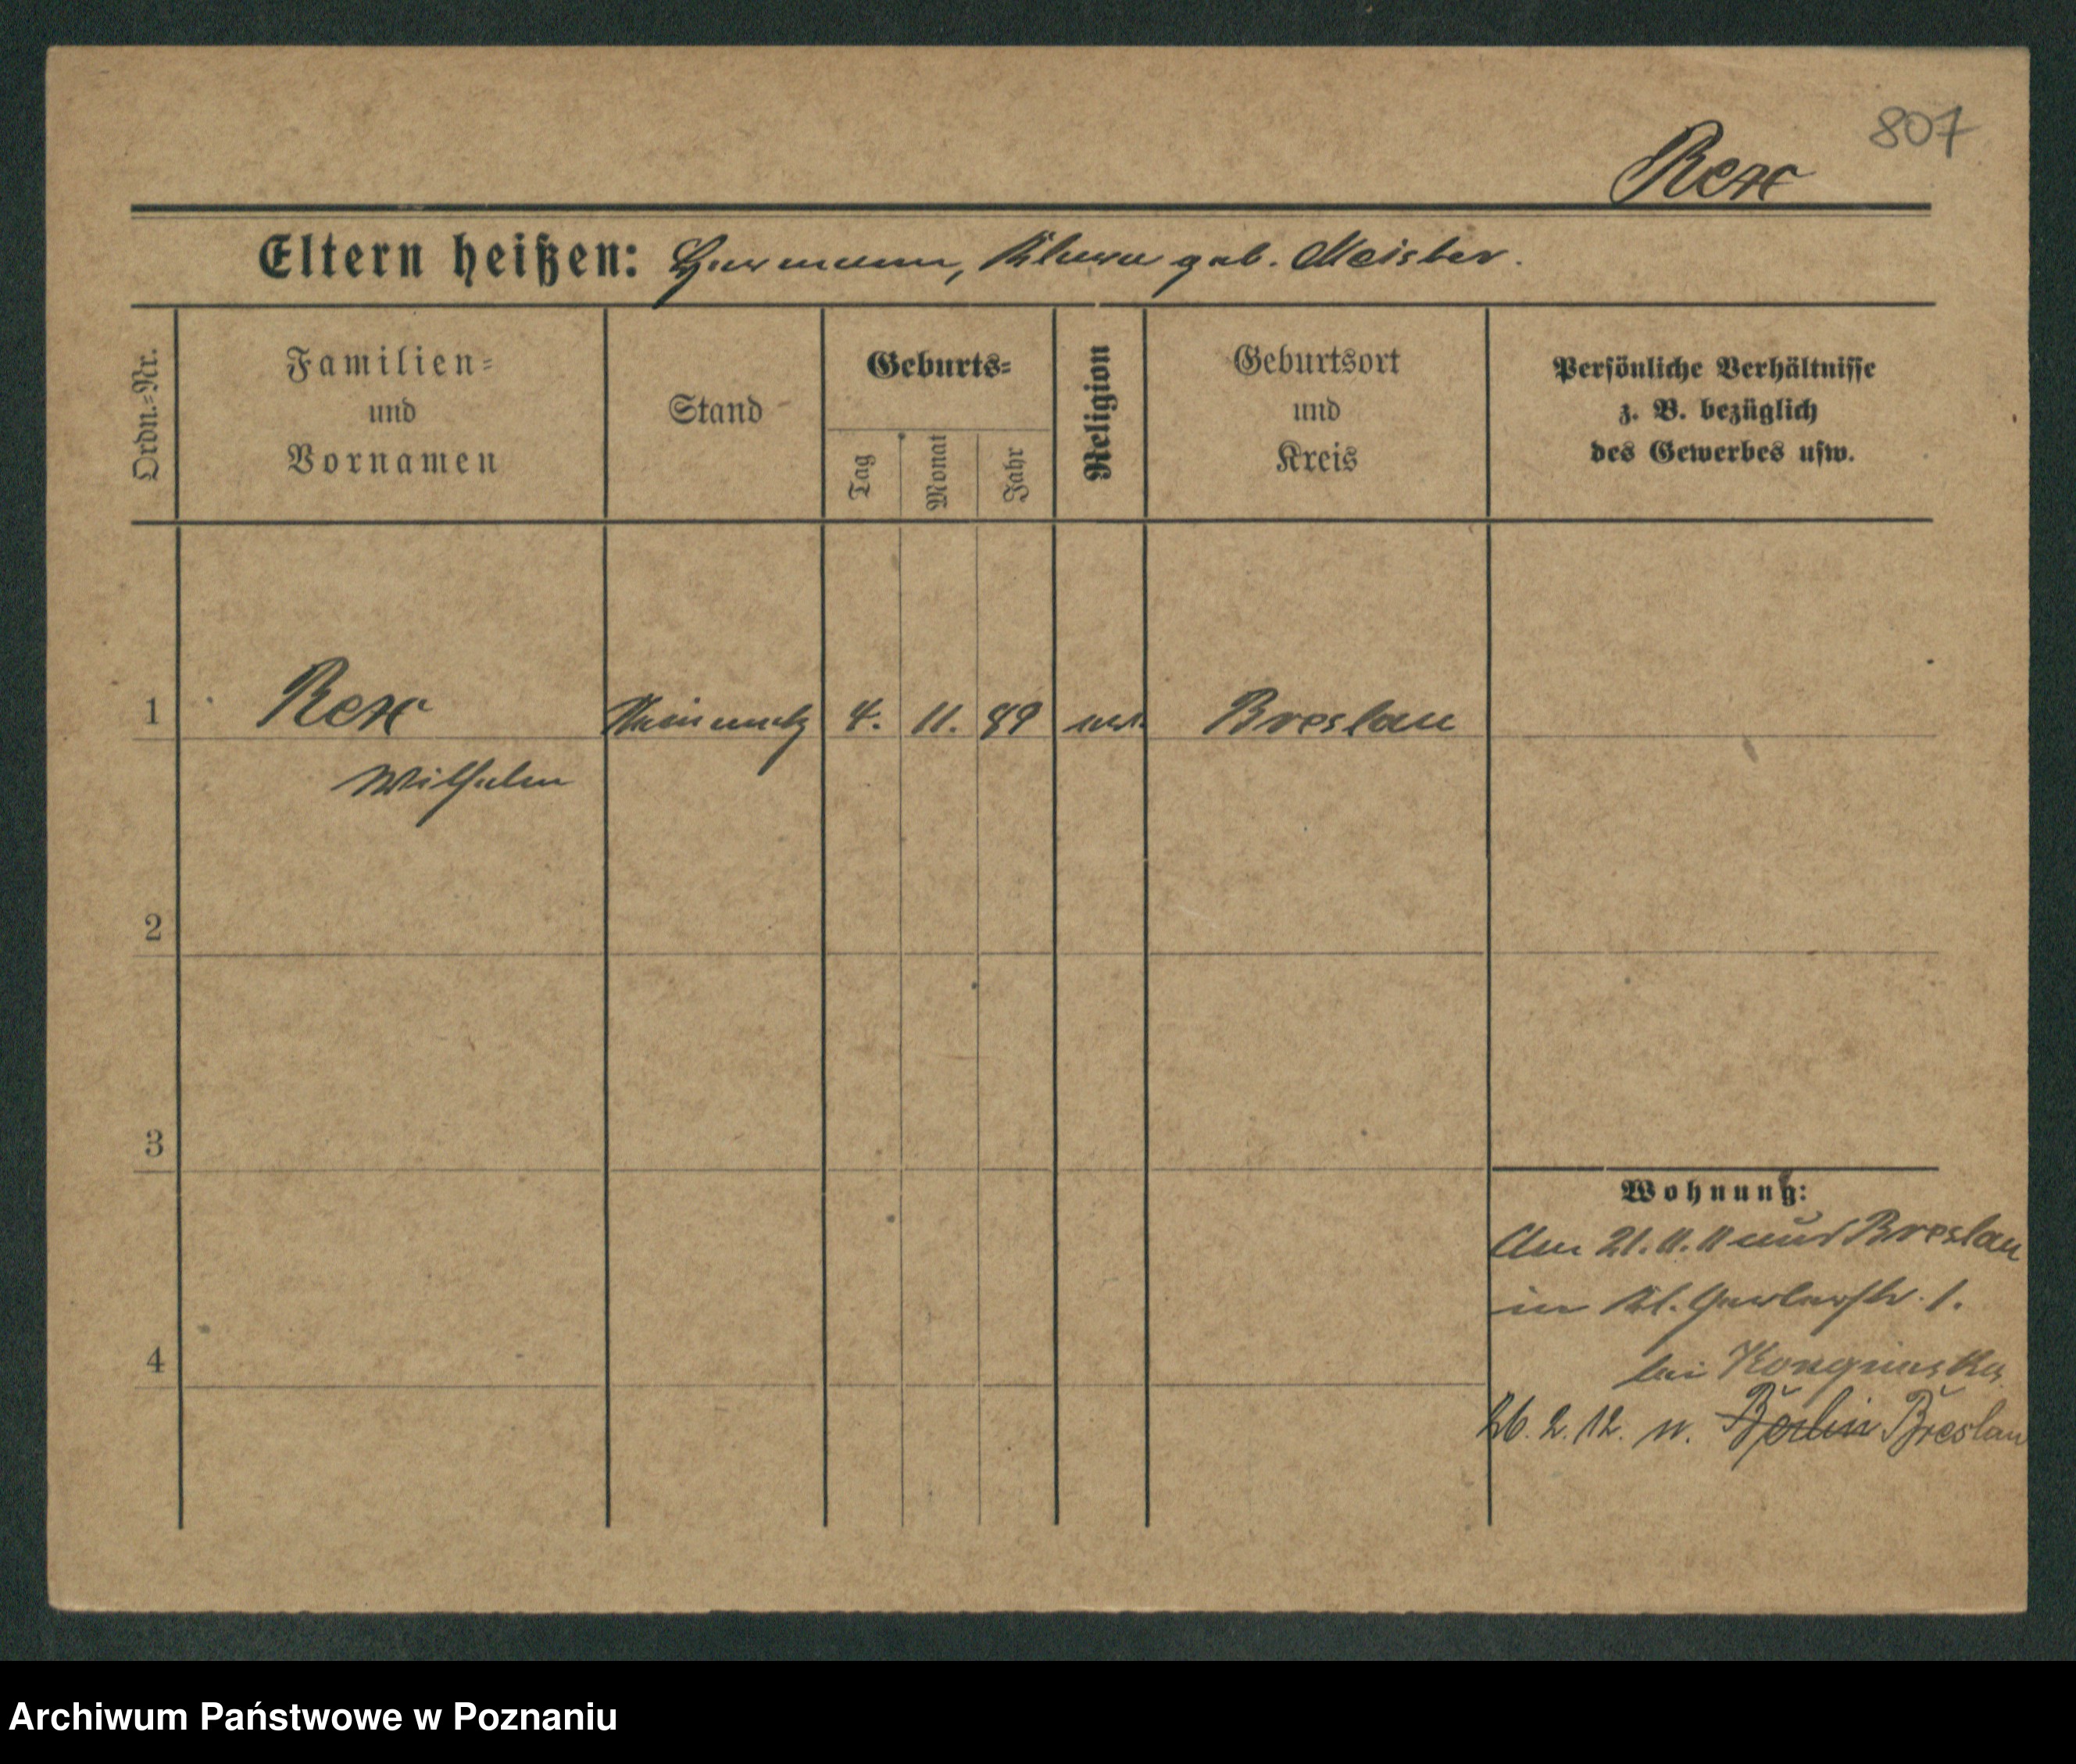 807
Rex
Eltern heißen: Hermann, Klara geb. Meister.
Ordn.=Nr.
Familien=
und
Vornamen
Stand
Geburts=
Tag
Monat
Jahr
Religion
Geburtsort
und
Kreis
Persönliche Verhältnisse
z. B. bezüglich
des Gewerbes usw.
1 Rex 4. 11. 89 Breslau
Wilhelm
2
3
Wohnung:
Am 21. 11. 11 aus Breslau
in Kl. Gerberstr. 1.
4
bei
26. 2. 12. n. Berlin Breslau
Archiwum Państwowe w Poznaniu